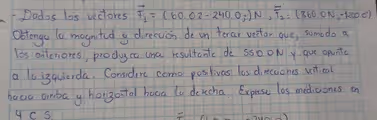 - Dados los vectores F₁ = (60.0i - 240.0j) N, F₂ = (360.0 N,
Obtenga la magnitud y dirección de un tercer vector que, sumado a
los anteriores, produzca una resultante de 550.0 N y que apunte
a la izquierda. Considere como positivas las direcciones vertical
hacia arriba y horizontal hacia la derecha. Exprese las mediciones en
4 C S